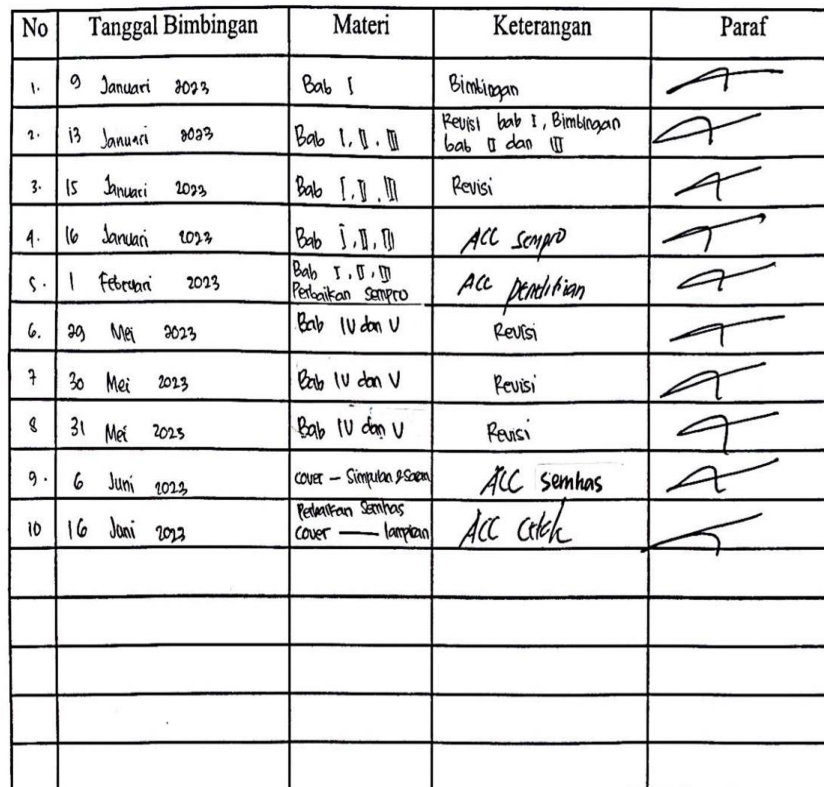 No Tanggal Bimbingan Materi Keterangan Paraf
1. 9 Januari 2023 Bab I Bimbingan
2. 13 Januari 2023 Bab I, II, III Revisi bab I, Bimbingan
bab II dan III
3. 15 Januari 2023 Bab I, II, III Revisi
4. 16 Januari 2023 Bab I, II, III ACC sempro
5. 1 Februari 2023 Bab I, II, III ACC penelitian
Perbaikan sempro
6. 29 Mei 2023 Bab IV dan V Revisi
7 30 Mei 2023 Bab IV dan V Revisi
8 31 Mei 2023 Bab IV dan V Revisi
9. 6 Juni 2023 cover – Simpulan & Saran ACC semhas
10 16 Juni 2023 Perbaikan Semhas ACC Cetak
cover — lampiran